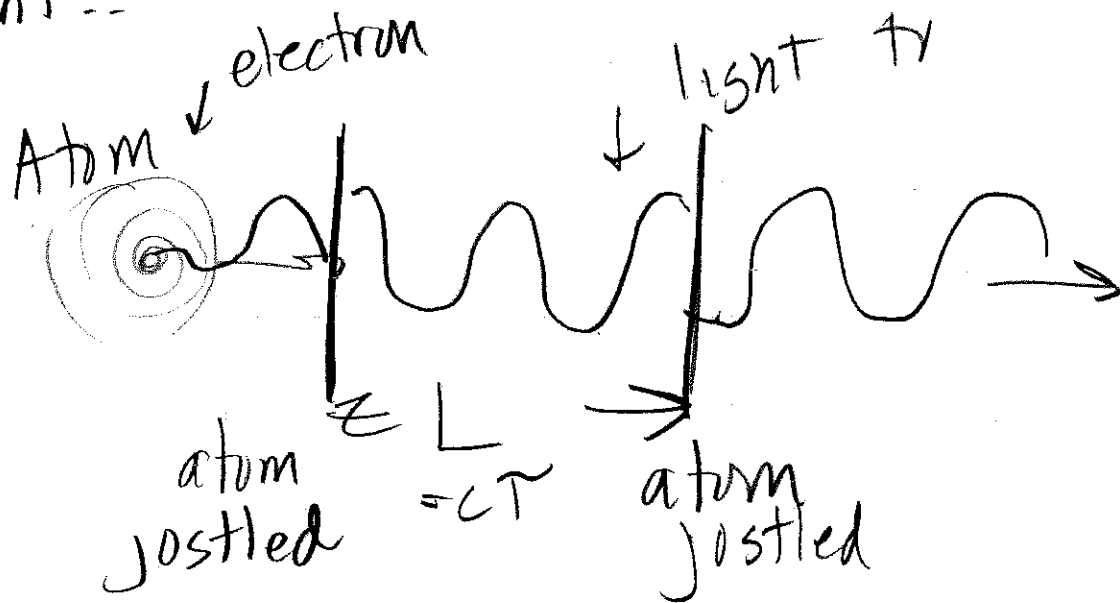 electron
light
Atom
L
= cT
atom
jostled
atom
jostled